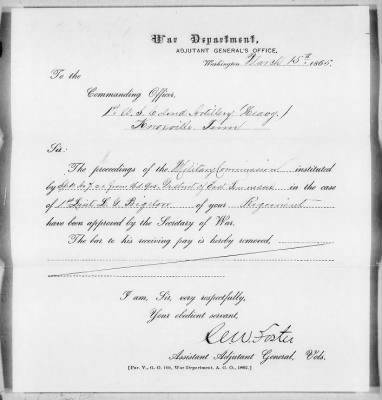 War Department,
ADJUTANT GENERAL'S OFFICE,
Washington, March 15th 1865.
To the
Commanding Officer,
1st U. S. Colored Artillery (Heavy)
Knoxville Tenn
Sir:
The proceedings of the Military Commission instituted
by S.O. No 7 c.s. from Hd. Qrs. District of East Tennessee in the case
of 1st Lieut L. A. Bigelow of your Regiment
have been approved by the Secretary of War.
The bar to his receiving pay is hereby removed,
I am, Sir, very respectfully,
Your obedient servant,
C. W. Foster
Assistant Adjutant General, Vols.
[Par. V., G. O. 169, War Department, A. G. O., 1862.]